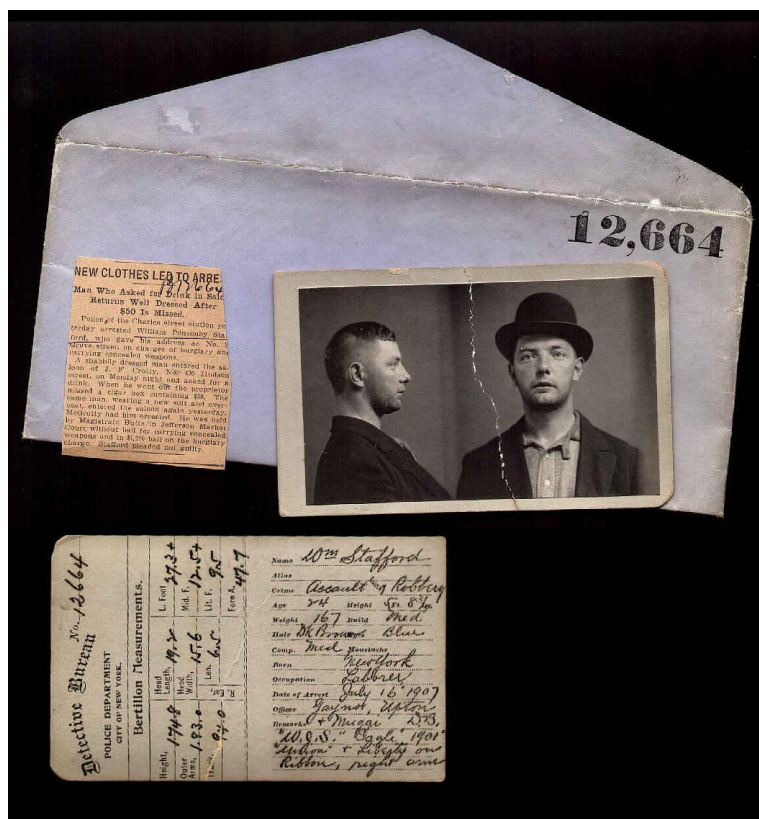 12,664
NEW CLOTHES LED TO ARRE
12664
Man Who Asked for Drink in Salo
Returns Well Dressed After
$50 Is Missed.
Police of the Charles street station ye
terday arrested William Ponsonby Sta
ford, who gave his address as No.
Grove street, on charges of burglary and
carrying concealed weapons.
A shabbily dressed man entered the sa
loon of J. F. Crotty, No. Hudson
street, on Monday night and asked for a
drink. When he went out the proprietor
missed a cigar box containing $50. The
same man, wearing a new suit and over
coat, entered the saloon again yesterday.
had him arrested. He was held
by Magistrate in Jefferson Market
Court without bail for carrying concealed
weapons and in bail on the burglary
charge. Stafford pleaded not guilty.
Detective Bureau No. 12664
POLICE DEPARTMENT
CITY OF NEW YORK.
Bertillon Measurements.
Height, 174.8 Head Length, 19.2 L. Foot 27.3+
Outer Arms, 183.0 Head Width, 15.6 Mid. F. 12.5+
Len. 6.5 Lit. F. 9.5
R. Ear, Fore A. 47.7
Name Wm Stafford
Alias
Crime Assault & Robbery
Age 24 Height 5 Ft. 8
Weight 167 Build Med
Hair Dk Brown Blue
Comp. Med Moustache
Born New York
Occupation Laborer
Date of Arrest July 15 1907
Officer Gaynor, Upton
Remarks + Muggi D.B.
"W.J.S." Eagle 1901
"Union" + Liberty on
Ribbon, right arm